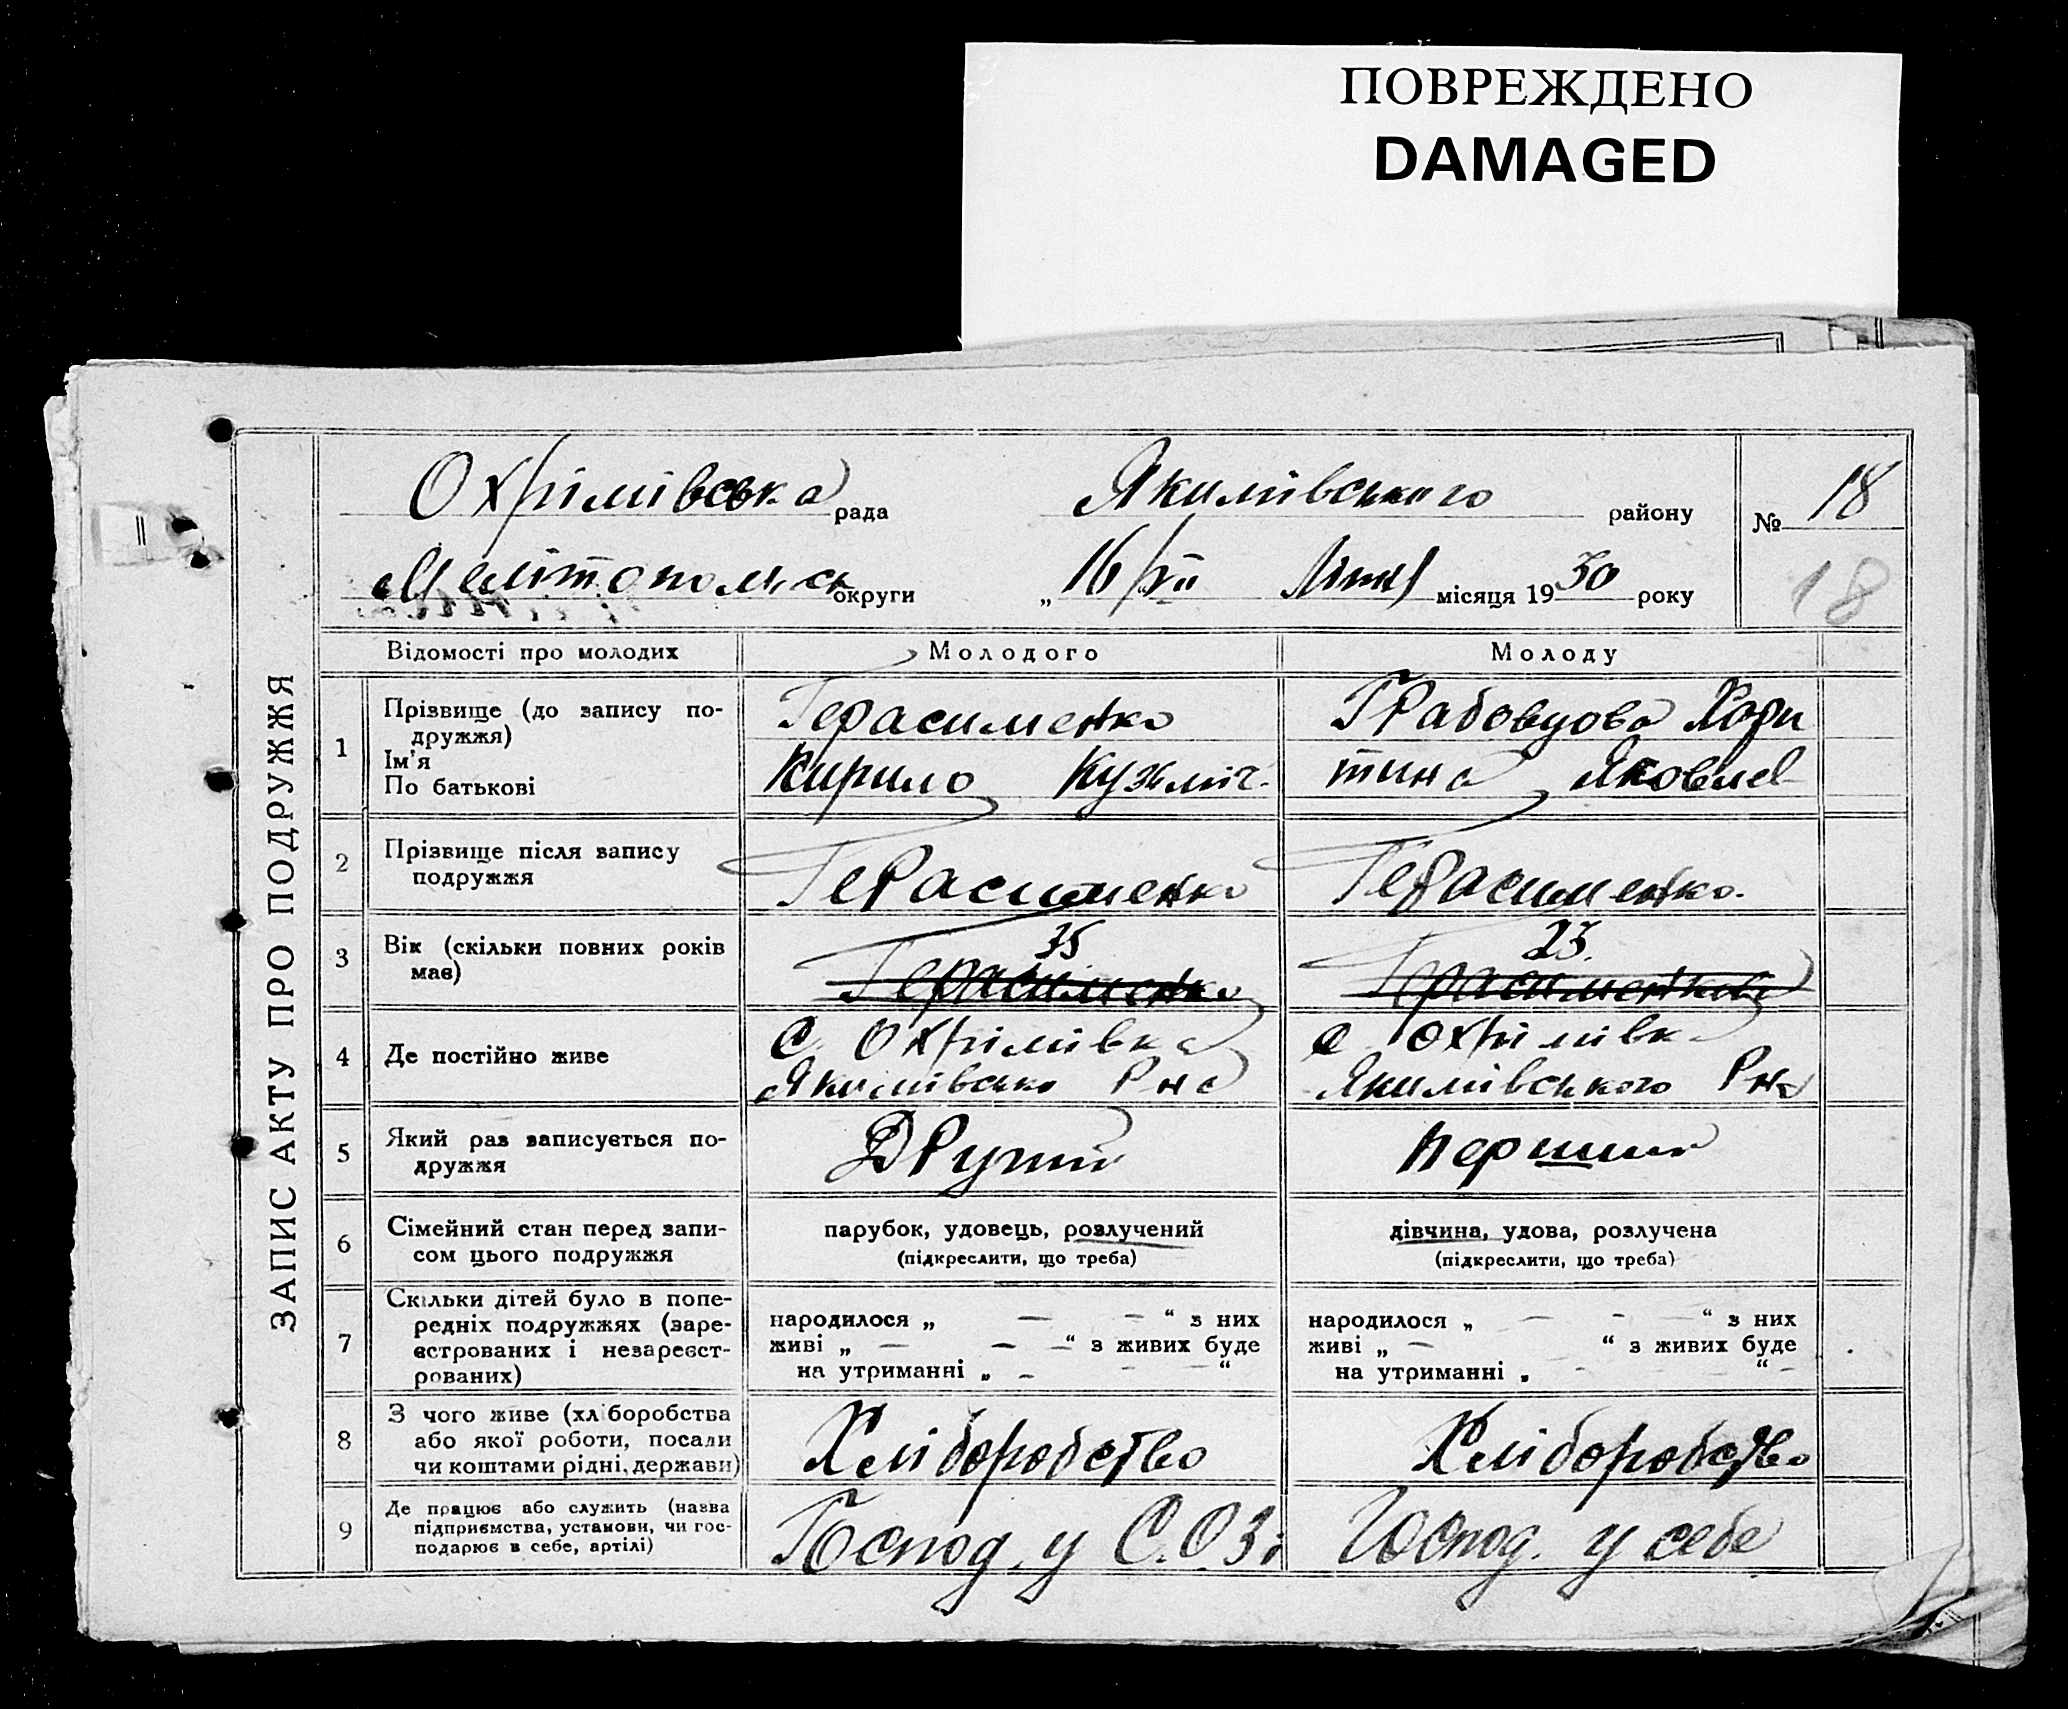 ПОВРЕЖДЕНО
DAMAGED
ЗАПИС АКТУ ПРО ПОДРУЖЖЯ
Охрімівська рада Якимівського району № 18
Мелітопольсь округи „ 16/VII Липня місяця 1930 року 18
Відомості про молодих Молодого Молоду
1 Прізвище (до запису по-
дружжя)
Ім'я
По батькові
Герасименко
Кирило Кузьміч.
Грабовцова Хори
тина Яковлев
2 Прізвище після запису
подружжя
Герасименко Герасименко.
3 Вік (скільки повних років
має)
35 23.
Герасименко
4 Де постійно живе
с. Охрімівка
Якимівсько Рна
с Охрімівка
Якимівського Рна
5 Який раз записується по-
дружжя
Другий Перший
6 Сімейний стан перед запи-
сом цього подружжя
парубок, удовець, розлучений
(підкреслити, що треба)
дівчина, удова, розлучена
(підкреслити, що треба)
7 Скільки дітей було в попе-
редніх подружжях (заре-
єстрованих і незареєст-
рованих)
народилося „ — — “ з них
живі „ — — — “ з живих буде
на утриманні „ - - — “
народилося „ — - — “ з них
живі „ — “ з живих буде
на утриманні „ - “ -
8 З чого живе (хліборобства
або якої роботи, посади
чи коштами рідні, держави)
Хліборобство Хліборобство
9 Де працює або служить (назва
підприємства, установи, чи гос-
подарює в себе, артілі)
Господ. у С.О.Зі Господ. у себе